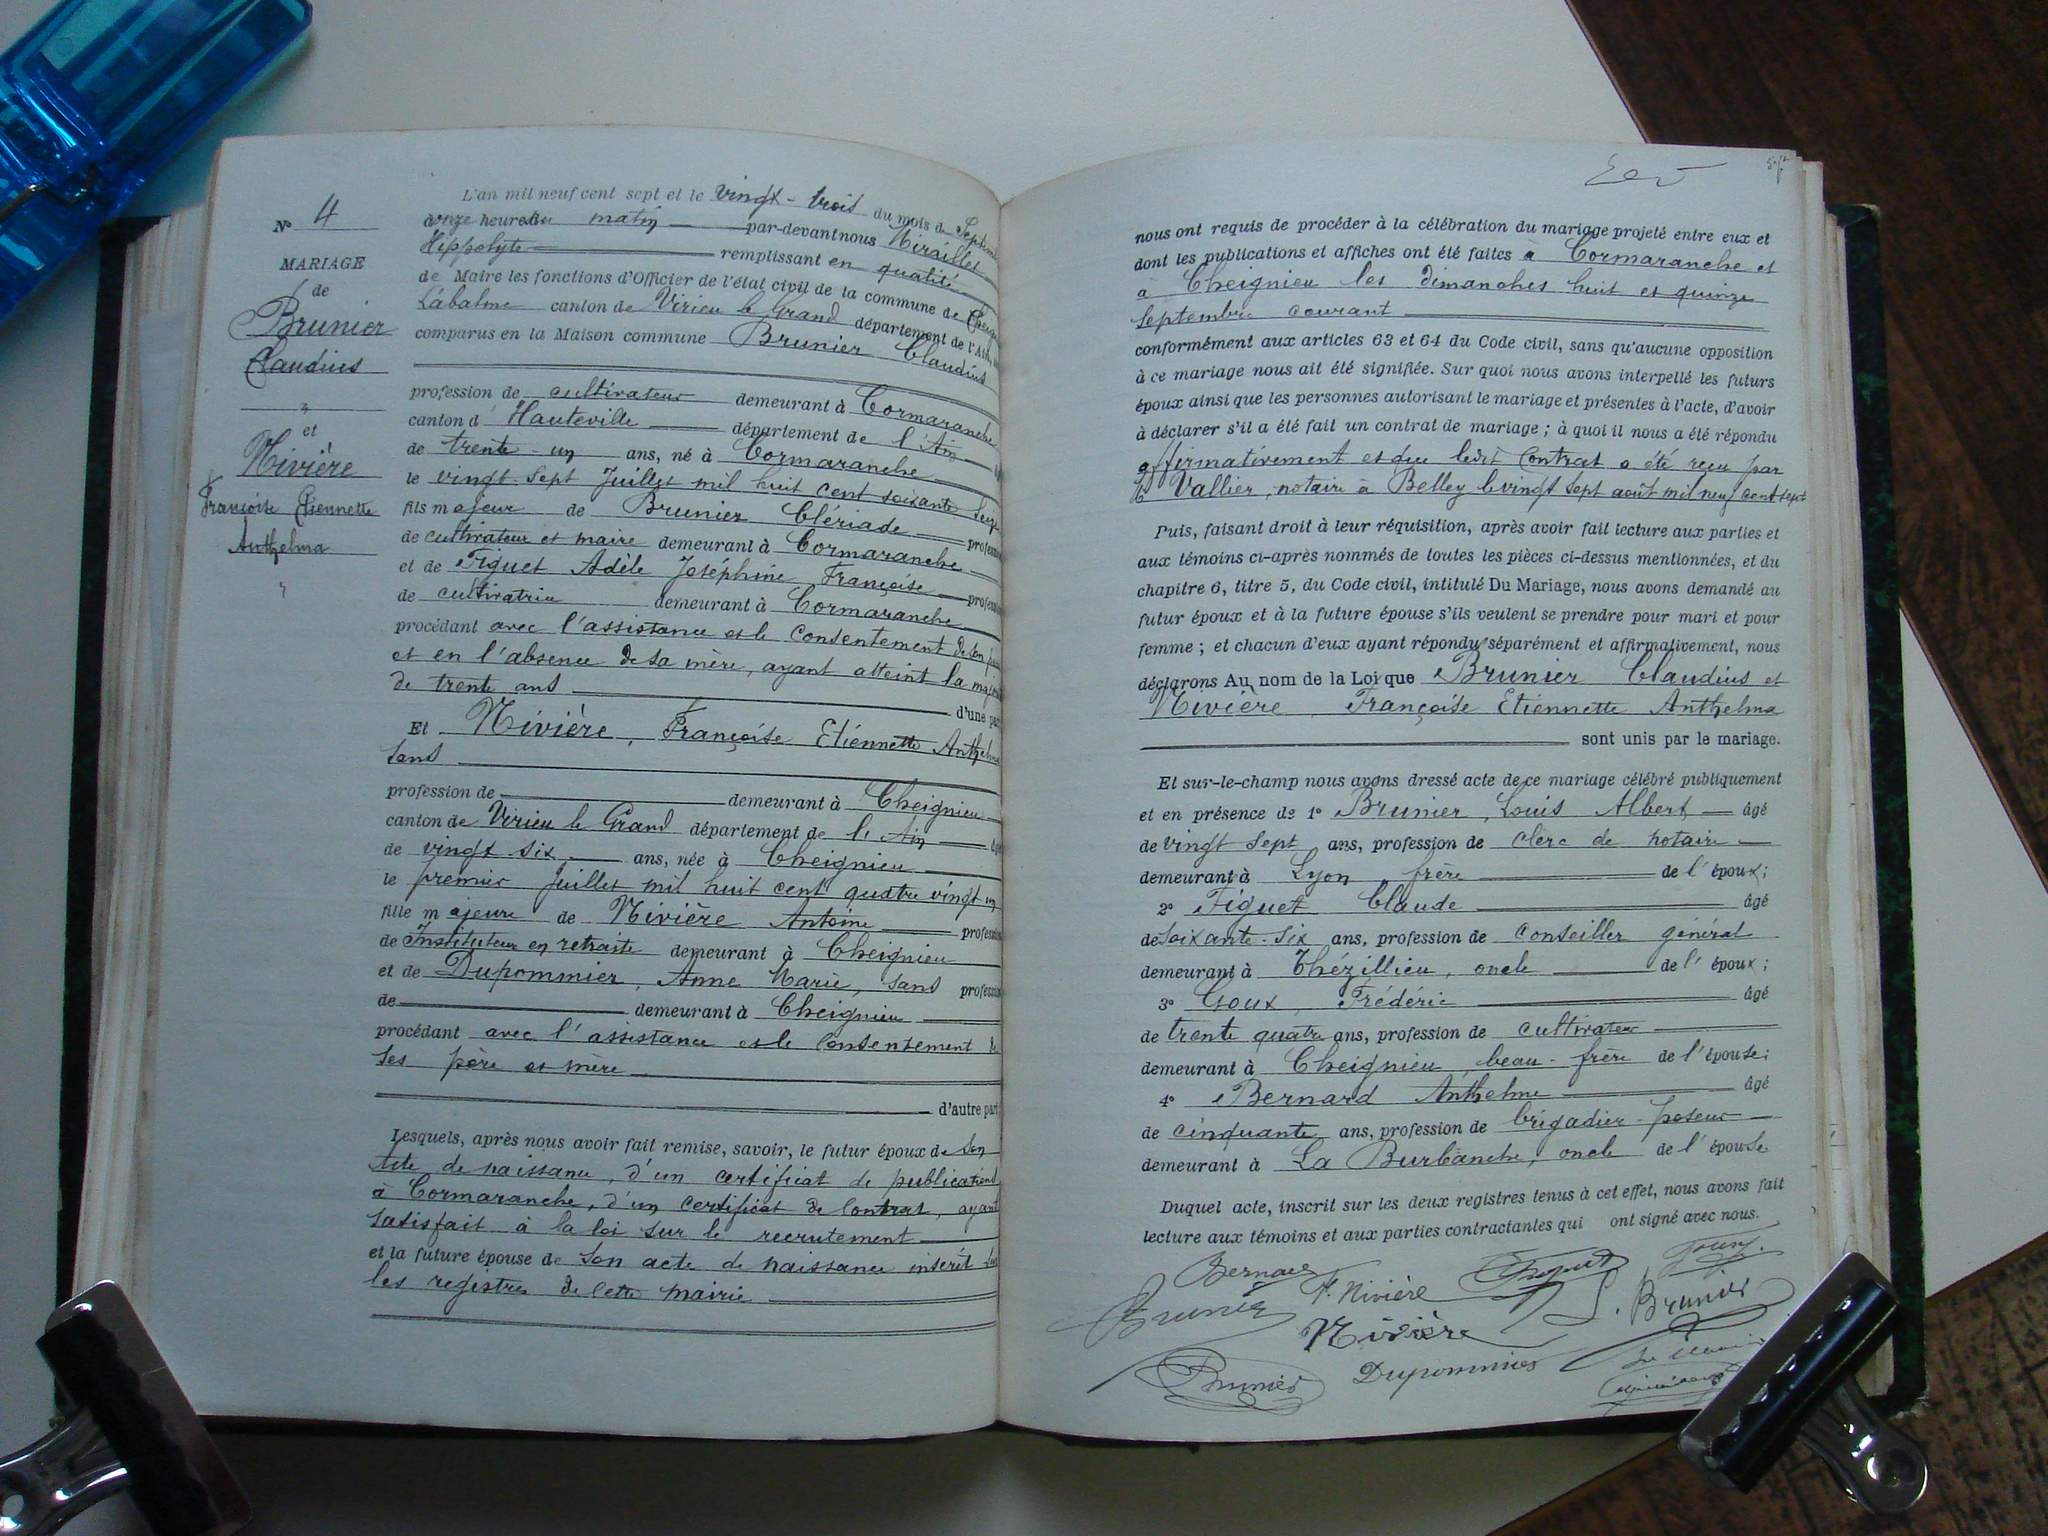 N° 4
MARIAGE
de
Brunier
Claudius
et
Nivière
Françoise Etiennette
Anthelma
L'an mil neuf cent sept et le vingt-trois du mois de Septembre
à onze heures du matin par-devant nous
Hippolyte remplissant en qualité
de Maire les fonctions d'Officier de l'état civil de la commune de
Labalme canton de Virieu le Grand département de l'Ain,
comparus en la Maison commune Brunier Claudius
profession de cultivateur demeurant à Cormaranche
canton d' Hauteville département de l'Ain
de trente-un ans, né à Cormaranche
le vingt-sept Juillet mil huit cent soixante seize
fils majeur de Brunier Clériade profession
de cultivateur et maire demeurant à Cormaranche
et de Figuet Adèle Joséphine Françoise profession
de cultivatrice demeurant à Cormaranche
procédant avec l'assistance et le consentement de son père
et en l'absence de sa mère, ayant atteint la
de trente ans d'une part
Et Nivière, Françoise Etiennette Anthelma
sans
profession de demeurant à Cheignieu
canton de Virieu le Grand département de l'Ain
de vingt-six ans, née à Cheignieu
le premier Juillet mil huit cent quatre vingt un
fille majeure de Nivière Antoine profession
de Instituteur en retraite demeurant à Cheignieu
et de Dupommier, Anne Marie, sans profession
de demeurant à Cheignieu
procédant avec l'assistance et le consentement de
ses père et mère
d'autre part
Lesquels, après nous avoir fait remise, savoir, le futur époux de son
acte de naissance, d'un certificat de publications
à Cormaranche, d'un certificat de contrat, ayant
satisfait à la loi sur le recrutement
et la future épouse de son acte de naissance insérit sur
les registres de cette mairie
nous ont requis de procéder à la célébration du mariage projeté entre eux et
dont les publications et affiches ont été faites à Cormaranche et
à Cheignieu les dimanches huit et quinze
septembre courant
conformément aux articles 63 et 64 du Code civil, sans qu'aucune opposition
à ce mariage nous ait été signifiée. Sur quoi nous avons interpellé les futurs
époux ainsi que les personnes autorisant le mariage et présentes à l'acte, d'avoir
à déclarer s'il a été fait un contrat de mariage ; à quoi il nous a été répondu
affirmativement et que ledit contrat a été reçu par
Me Vallier, notaire à Belley le vingt sept août mil neuf cent sept
Puis, faisant droit à leur réquisition, après avoir fait lecture aux parties et
aux témoins ci-après nommés de toutes les pièces ci-dessus mentionnées, et du
chapitre 6, titre 5, du Code civil, intitulé Du Mariage, nous avons demandé au
futur époux et à la future épouse s'ils veulent se prendre pour mari et pour
femme ; et chacun d'eux ayant répondu séparément et affirmativement, nous
déclarons Au nom de la Loi que Brunier Claudius et
Nivière Françoise Etiennette Anthelma
sont unis par le mariage.
Et sur-le-champ nous avons dressé acte de ce mariage célébré publiquement
et en présence de 1° Brunier, Louis Albert âgé
de vingt sept ans, profession de clerc de notaire
demeurant à Lyon frère de l'époux ;
2° Figuet Claude âgé
de soixante-six ans, profession de conseiller général
demeurant à Thézillieu, oncle de l'époux ;
3° Goux, Frédéric âgé
de trente quatre ans, profession de cultivateur
demeurant à Cheignieu, beau-frère de l'épouse ;
4° Bernard Anthelme âgé
de cinquante ans, profession de brigadier-poseur
demeurant à La Burbanche, oncle de l'épouse
Duquel acte, inscrit sur les deux registres tenus à cet effet, nous avons fait
lecture aux témoins et aux parties contractantes qui ont signé avec nous.
Bernard
F. Nivière
Figuet
Goux
Brunier
L. Brunier
Nivière
Brunier
Dupommier
Le Maire